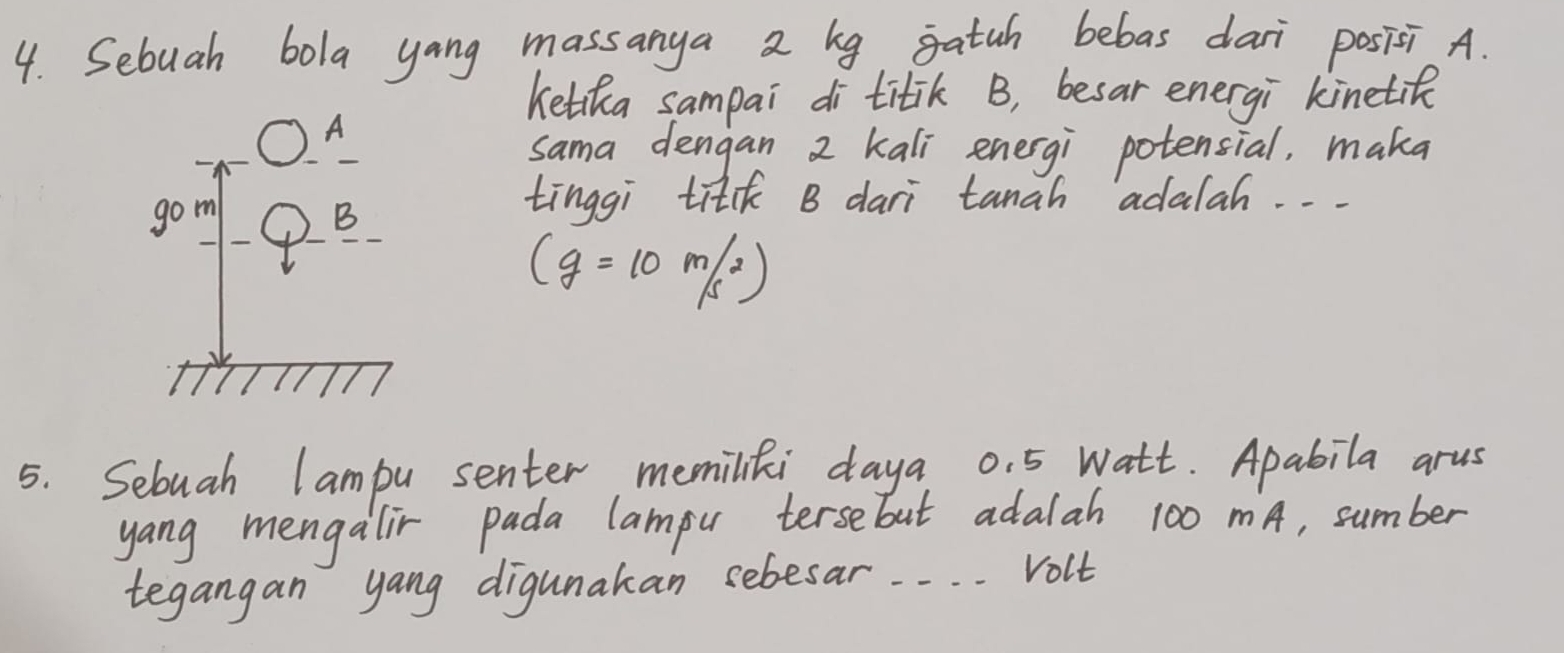 4. Sebuah bola yang massanya 2 kg jatuh bebas dari posisi A.
ketika sampai di titik B, besar energi kinetik
sama dengan 2 kali energi potensial. maka
tinggi titik B dari tanah adalah ...
(g = 10 m/s²)
A
90 m
B
5. Sebuah lampu senter memiliki daya 0.5 Watt. Apabila arus
yang mengalir pada lampu tersebut adalah 100 mA, sumber
tegangan yang digunakan sebesar .... Volt